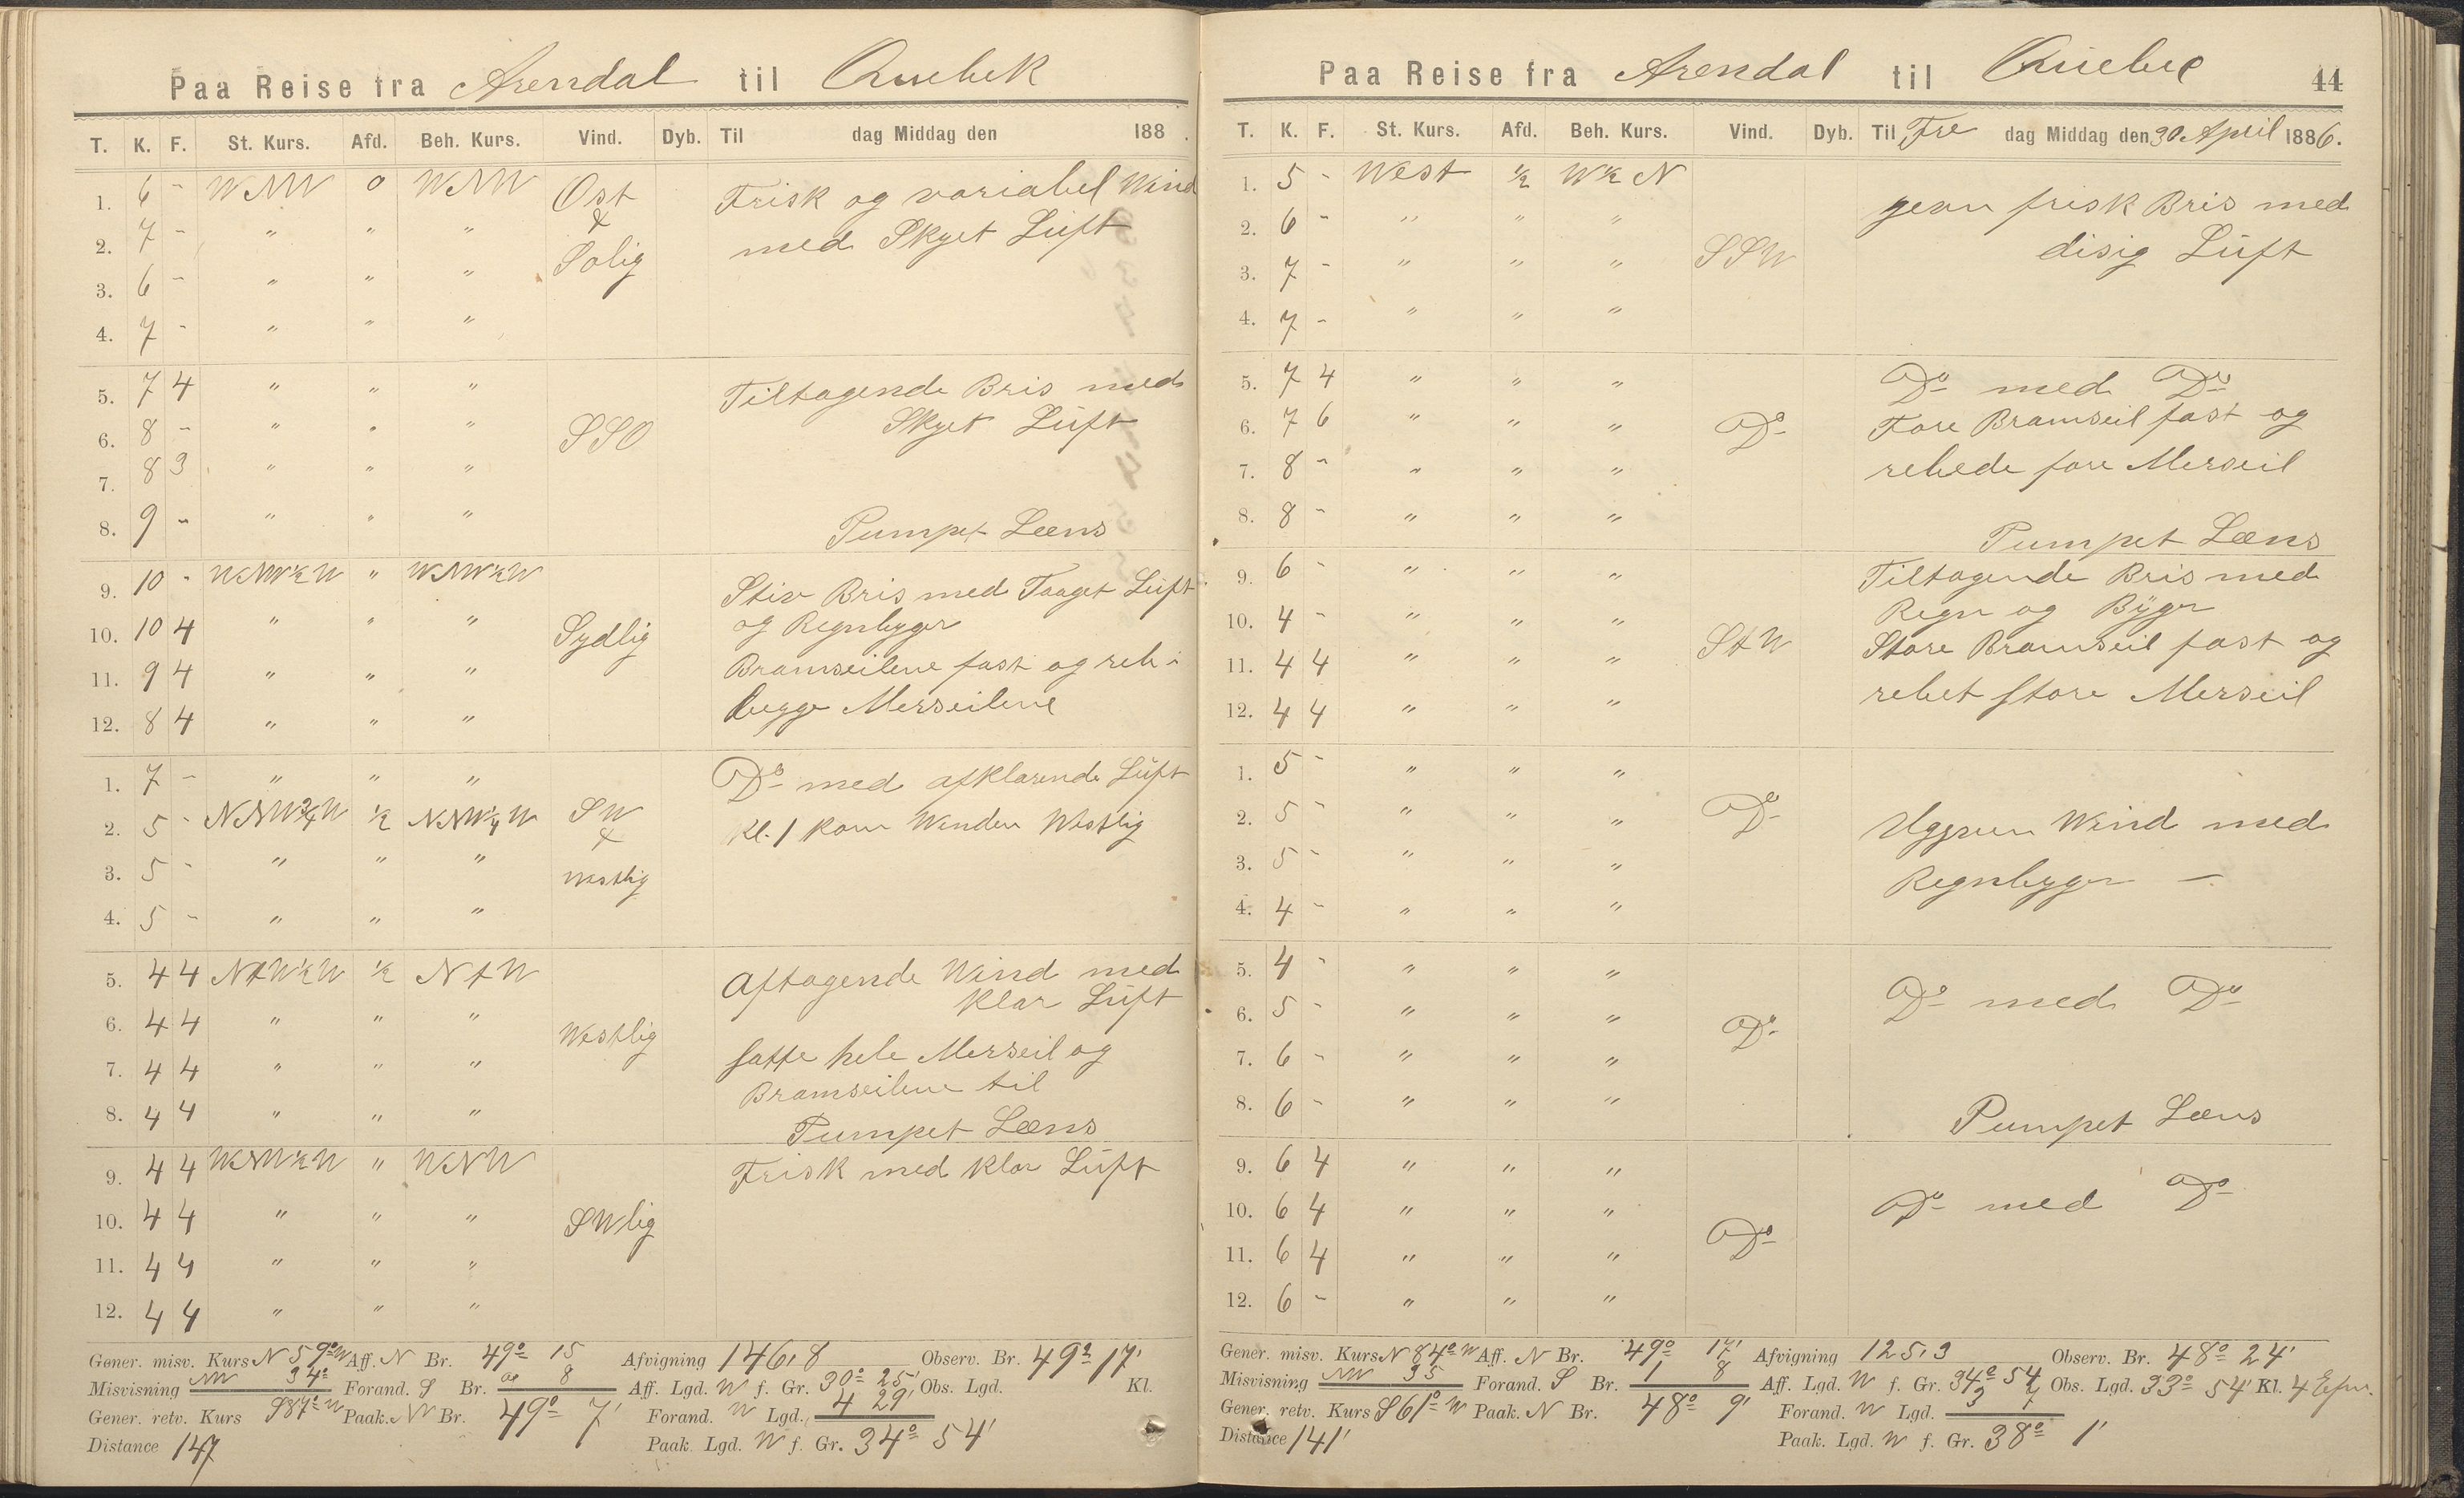 Paa Reise fra Arendal til Quebek
T. K. F. St. Kurs. Afd. Beh. Kurs. Vind. Dyb. Til dag Middag den 188 .
1. 6 - WNW 0 WNW Ost Frisk og variabel Wind
2. 7 - " " " & med Skyet Luft
3. 6 - " " " Solig
4. 7 - " " "
5. 7 4 " " " Tiltagende Bris med
6. 8 - " " " SSO Skyet Luft
7. 8 3 " " "
8. 9 - " " " Pumpet Læns
9. 10 - WNW½W " WNW½W Stiv Bris med Taaget Luft
10. 10 4 " " " Sydlig og Regnbyger
11. 9 4 " " " Bramseilene fast og reb i
12. 8 4 " " " begge Merseilene
1. 7 - " " " Do med afklarende Luft
2. 5 - NNW¾W ½ NNW¼W SW Kl. 1 kom Winden Westlig
3. 5 - " " " & Westlig
4. 5 - " " "
5. 4 4 NtW½W ½ NtW Aftagende Wind med
klar Luft
6. 4 4 " " " Westlig
7. 4 4 " " " satte hele Merseil og
8. 4 4 " " " Bramseilene til
Pumpet Læns
9. 4 4 WNW½W " WNW Frisk med klar Luft
10. 4 4 " " " SWlig
11. 4 4 " " "
12. 4 4 " " "
Gener. misv. Kurs N 59° W Aff. N Br. 49° 15 Afvigning 146,8 Observ. Br. 49° 17'
Misvisning NW 34° Forand. S Br. 8 Aff. Lgd. W f. Gr. 30° 25' Obs. Lgd. Kl.
Gener. retv. Kurs S87° W Paak. N Br. 49° 7' Forand. W Lgd. 4 29'
Distance 147 Paak. Lgd. W f. Gr. 34° 54'
Paa Reise fra Arendal til Quebec 44
T. K. F. St. Kurs. Afd. Beh. Kurs. Vind. Dyb. Til Fre dag Middag den 30 April 1886.
1. 5 - West ½ W½N jevn frisk Bris med
2. 6 - " " " disig Luft
3. 7 - " " " SSW
4. 7 - " " "
5. 7 4 " " " Do med Do
6. 7 6 " " " Do Fore Bramseil fast og
7. 8 - " " " rebede fore Merseil
8. 8 - " " " Pumpet Læns
9. 6 - " " " Tiltagende Bris med
10. 4 - " " " StW Regn og Byger
11. 4 4 " " " Store Bramseil fast og
12. 4 4 " " " rebet store Merseil
1. 5 - " " "
2. 5 - " " " Do Ugjevn Wind med
3. 5 - " " " Regnbyger —
4. 4 - " " "
5. 4 - " " " Do med Do
6. 5 - " " " Do
7. 6 - " " "
8. 6 - " " " Pumpet Læns
9. 6 4 " " "
10. 6 4 " " " Do med Do
11. 6 4 " " " Do
12. 6 - " " "
Gener. misv. Kurs N 84° W Aff. N Br. 49° 17' Afvigning 125,3 Observ. Br. 48° 24'
Misvisning NW 35 Forand. S Br. 1 8 Aff. Lgd. W f. Gr. 34° 54 Obs. Lgd. 33° 54' Kl. 4 Efm.
Gener. retv. Kurs S61° W Paak. N Br. 48° 9' Forand. W Lgd. 3 7
Distance 141' Paak. Lgd. W f. Gr. 38° 1'